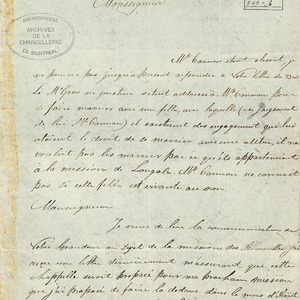 Monseigneur
ARCHIDIOCÈSE
ARCHIVES
DE LA
CHANCELLERIE
DE MONTRÉAL
Mr Cannon étant absent, je
ne pouvais pas jusqu'à présent répondre à votre lettre du
Mr Gros ou quelqu'un s'étant addressé à Mr Cannon pour
se faire marier avec une fille, avec laquelle (au jugement
de lui Mr Cannon) il existoient des engagements qui lui
otoient le droit de se marier avec une autre, il ne
voulait pas les marier parce qu'ils appartenaient
à la mission de Longale. Mr Cannon ne connoit
pas si cette fille est vivante ou non.
Monseigneur
Je viens de lire la communication de
Votre Grandeur au sujet de la mission des
reçue une lettre dernièrement m'assurant que cette
chappelle serait préparée pour ma prochaine mission
que j'ai proposé de faire là dedans dans le mois d'Avril